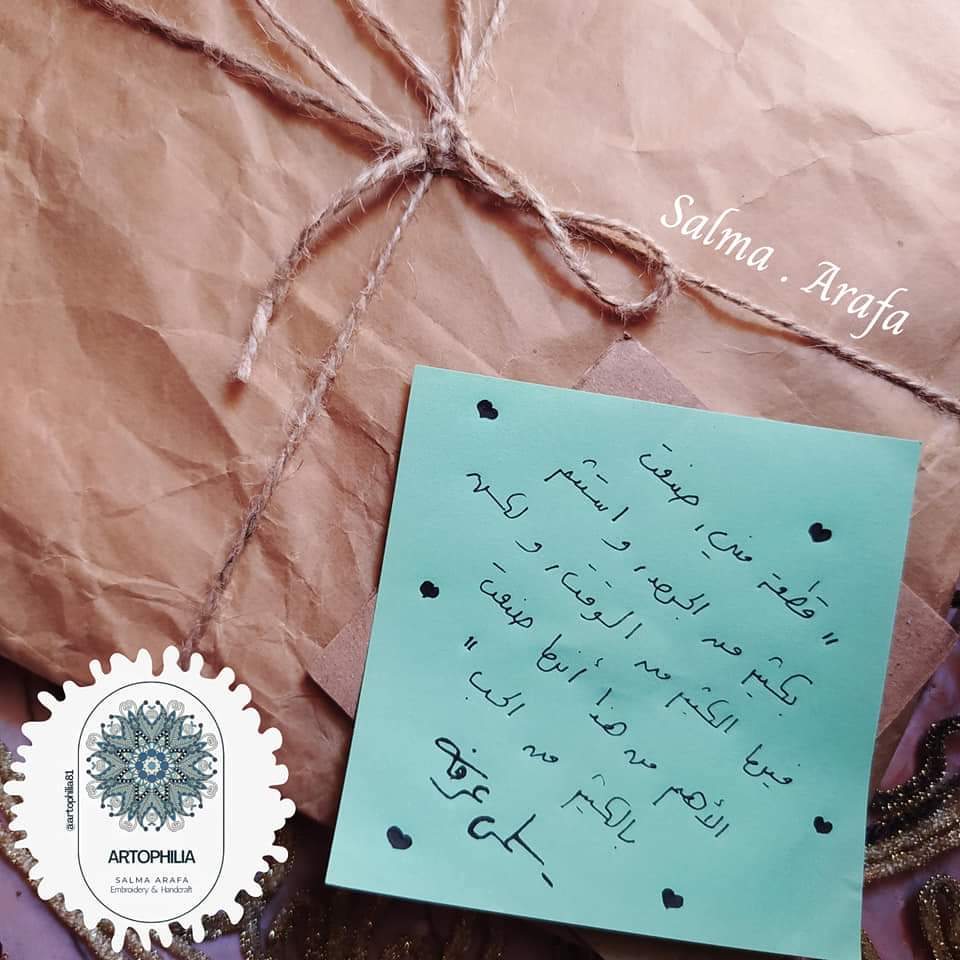 Salma . Arafa
"قطعة مني، صنعت
بكثير من الجهد، و استثمر
فيها الكثير من الوقت، و لكن
الأهم من هذا أنها صنعت
بالكثير من الحب"
سلمى عرفه
@artophilia81
ARTOPHILIA
SALMA ARAFA
Embroidery & Handcraft